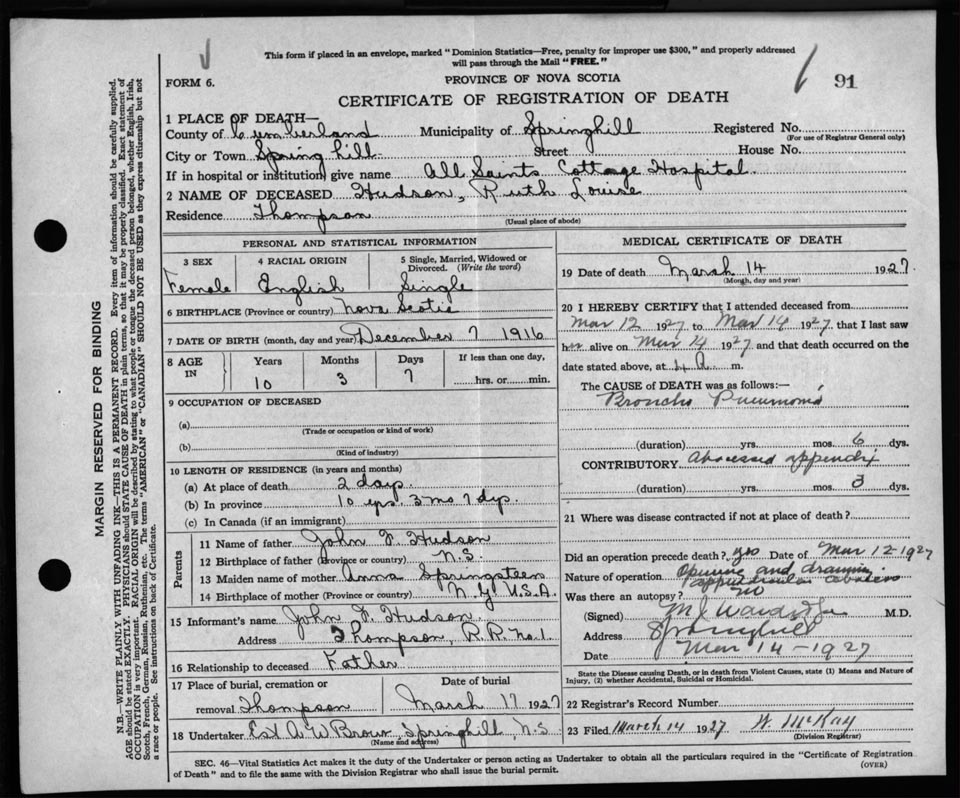 This form if placed in an envelope, marked "Dominion Statistics—Free, penalty for improper use $300," and properly addressed
will pass through the Mail "FREE."
FORM 6.
PROVINCE OF NOVA SCOTIA
91
CERTIFICATE OF REGISTRATION OF DEATH
1 PLACE OF DEATH—
County of Cumberland Municipality of Springhill Registered No.
(For use of Registrar General only)
City or Town Spring hill Street House No.
If in hospital or institution, give name All Saints Cottage Hospital
2 NAME OF DECEASED Hudson, Ruth Louise
Residence Thompson
(Usual place of abode)
PERSONAL AND STATISTICAL INFORMATION
3 SEX 4 RACIAL ORIGIN 5 Single, Married, Widowed or Divorced. (Write the word)
Female English Single
6 BIRTHPLACE (Province or country) Nova Scotia
7 DATE OF BIRTH (month, day and year) December 7 1916
8 AGE IN Years Months Days If less than one day,
10 3 7 hrs. or min.
9 OCCUPATION OF DECEASED
(a)
(Trade or occupation or kind of work)
(b)
(Kind of industry)
10 LENGTH OF RESIDENCE (in years and months)
(a) At place of death 2 days
(b) In province 10 yrs. 3 mo 7 dys.
(c) In Canada (if an immigrant)
Parents
11 Name of father John F Hudson
12 Birthplace of father (Province or country) N.S.
13 Maiden name of mother Anna Springsteen
14 Birthplace of mother (Province or country) N.Y. U.S.A.
15 Informant's name John F. Hudson
Address Thompson, R.R. No. 1.
16 Relationship to deceased Father
17 Place of burial, cremation or removal Thompson Date of burial March 17 1927
18 Undertaker Est A W Brown, Springhill, N.S.
(Name and address)
MEDICAL CERTIFICATE OF DEATH
19 Date of death March 14 1927
(Month, day and year)
20 I HEREBY CERTIFY that I attended deceased from
Mar 12 1927 to Mar 14 1927. that I last saw
her alive on Mar 14 1927 and that death occurred on the
date stated above, at 4 A. m.
The CAUSE OF DEATH was as follows:—
Broncho Pneumonia
(duration) yrs. mos. 6 dys.
CONTRIBUTORY Abscessed appendix
(duration) yrs. mos. 3 dys.
21 Where was disease contracted if not at place of death?
Did an operation precede death? yes Date of Mar 12-1927
Nature of operation Opening and draining
appendicular abscess
Was there an autopsy? no
(Signed) M.D.
Address Springhill
Date Mar 14-1927
State the Disease causing Death, or in death from Violent Causes, state (1) Means and Nature of
Injury, (2) whether Accidental, Suicidal or Homicidal.
22 Registrar's Record Number
23 Filed March 14 1927 W. McKay
(Division Registrar)
SEC. 46—Vital Statistics Act makes it the duty of the Undertaker or person acting as Undertaker to obtain all the particulars required in the "Certificate of Registration
of Death" and to file the same with the Division Registrar who shall issue the burial permit.
(OVER)
MARGIN RESERVED FOR BINDING
N.B.—WRITE PLAINLY WITH UNFADING INK—THIS IS A PERMANENT RECORD. Every item of information should be carefully supplied.
AGE should be stated EXACTLY. PHYSICIANS should STATE CAUSE OF DEATH in plain terms, so that it may be properly classified. Exact statement of
OCCUPATION is very important. RACIAL ORIGIN will be described by stating to what people or tongue the deceased person belonged, whether English, Irish,
Scotch, French, German, Russian, Ruthenian, etc. The terms "AMERICAN" or "CANADIAN" SHOULD NOT BE USED as they express citizenship but not
a race or people. See instructions on back of Certificate.